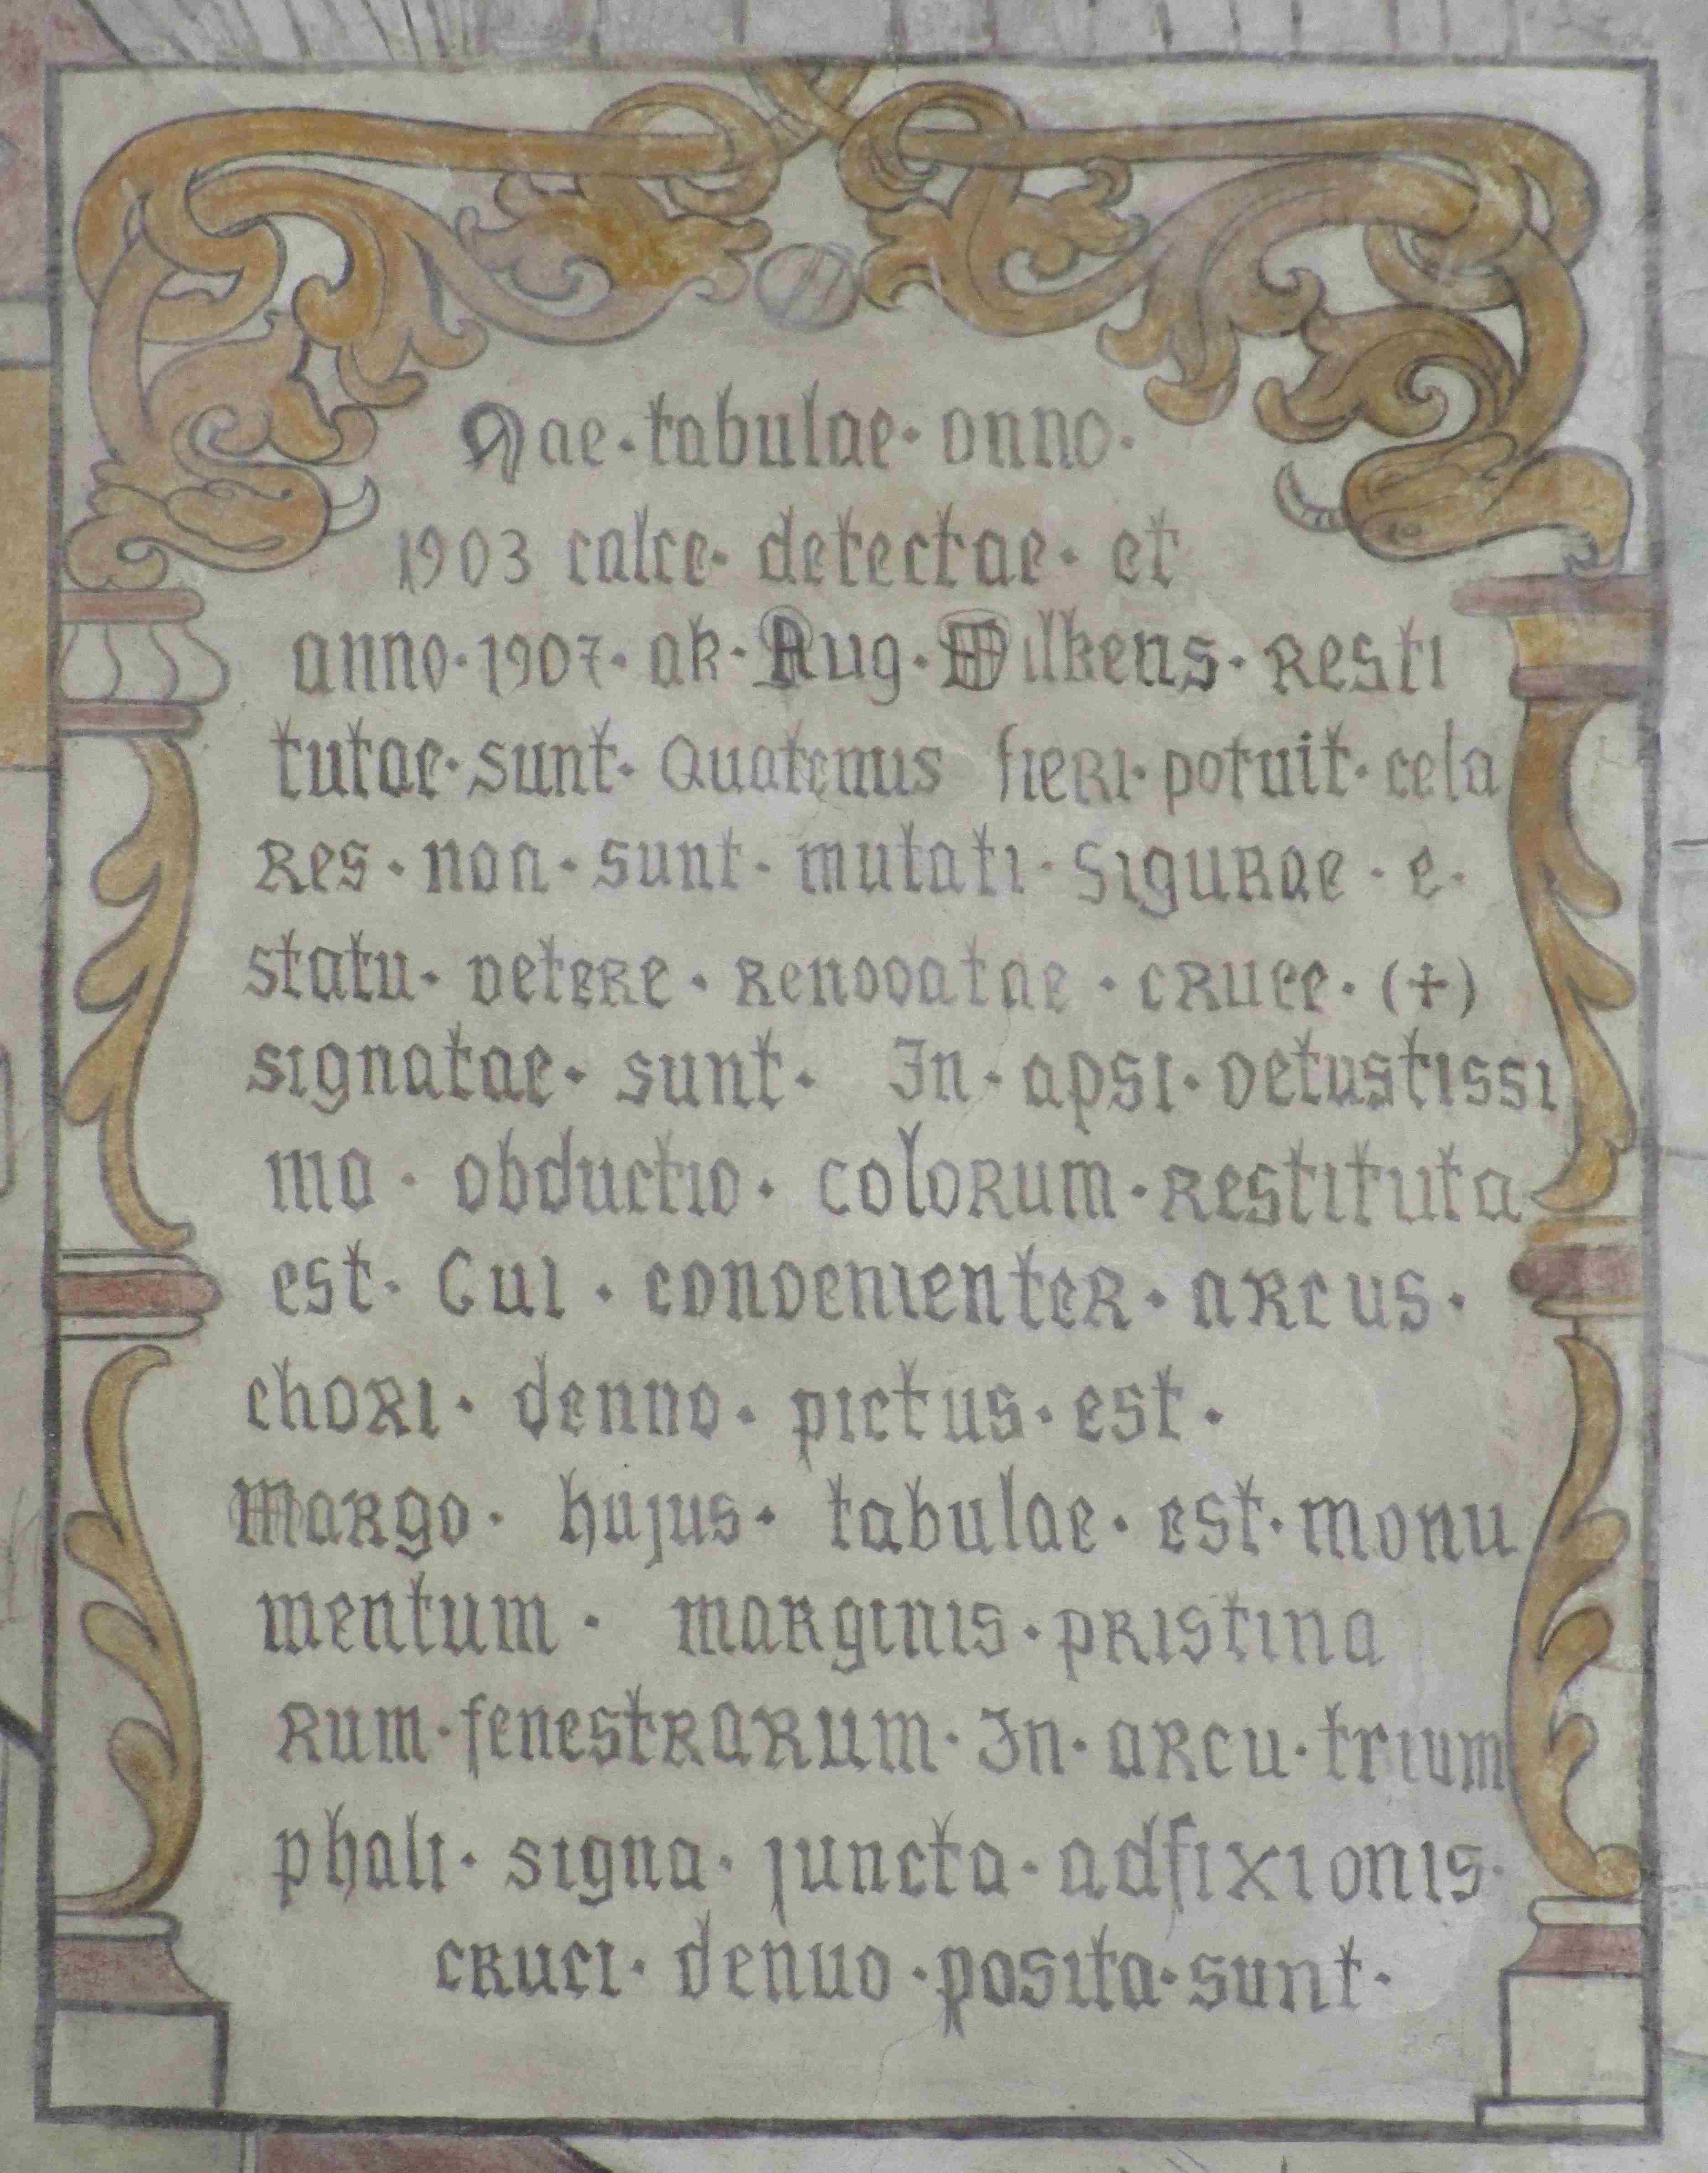 Hae · tabulae · anno ·
1903 calce · detectae · et
anno · 1907 · ab · Aug · Wilkens · resti
tutae · sunt · Quatenus fieri · potuit · cela
res · non · sunt · mutati · Sigurae · e ·
statu · vetere · renovatae · cruce · (+)
signatae · sunt · In · apsi · vetustissi
ma · obductio · colorum · restituta
est · Cui · convenienter · arcus ·
chori · denno · pictus · est ·
Margo · hujus · tabulae · est · monu
mentum · marginis · pristina
rum · fenestrarum · In · arcu · trium
phali · signa · juncta · adfixionis ·
cruci · denuo · posita · sunt ·